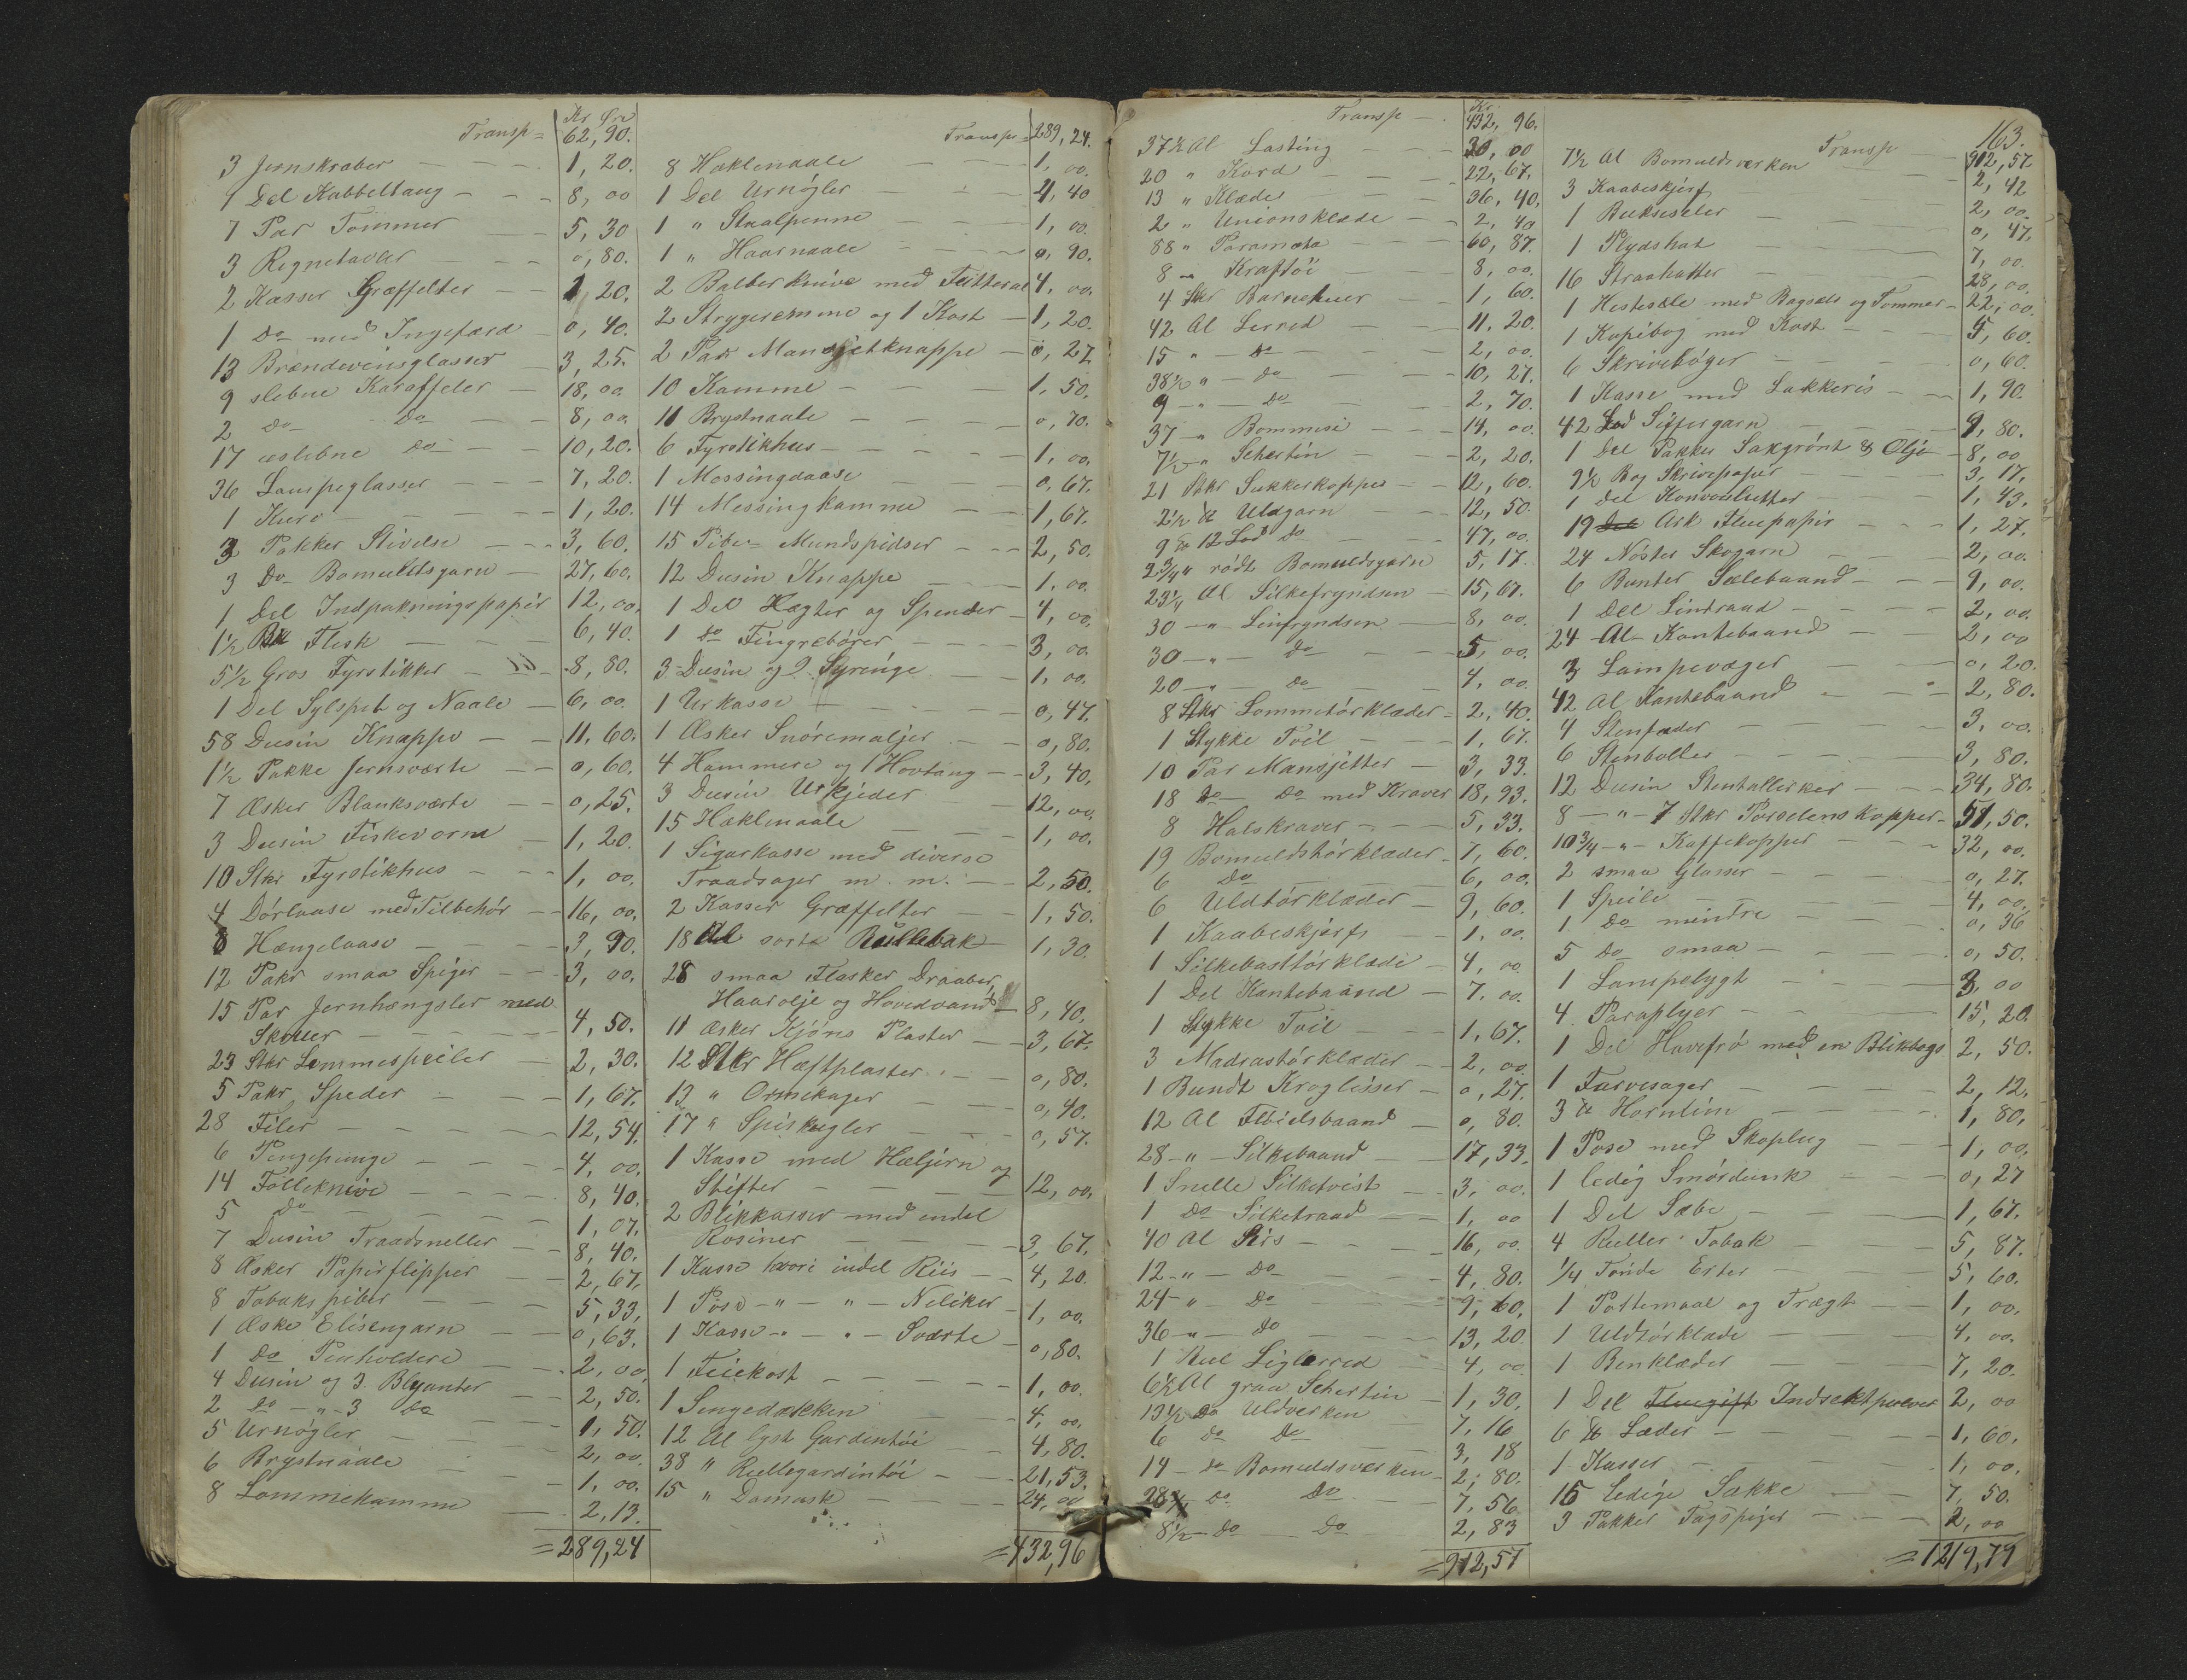 Kr Øre
Transp = 62,90.
3 Jernskraber — 1,20.
1 Del Kabbeltaug — 8,00
7 Par Tömmer — 5,30
3 Regnetavler — 0,80.
2 Kasser Græffelter — 1,20.
1 Do med Ingefærd — 0,40.
13 Brændevinsglasser — 3,25.
9 slebne Karaffeler — 18,00
2 Do Do — 8,00
17 uslebne Do — 10,20.
36 Lampeglasser — 7,20.
1 Kurv — 1,20.
3 Pakker Stivelse — 3,60.
3 Do Bomuldsgarn — 27,60.
1 Del Indpakningspapir 12,00.
1½ Flesk — 6,40.
5½ Gros Fyrstikker — 8,80.
1 Del Sylspit og Naale — 6,00
58 Dusin Knappe — 11,60.
1½ Pakke Jernsværte — 0,60.
7 Æsker Blanksværte — 0,25.
3 Dusin Fiskevorm — 1,20.
10 Stkr Fyrstikhus — 1,00.
4 Dörlaase med Tilbehör — 16,00.
8 Hængelaase — 3,90.
12 Pakr smaa Spiger — 3,00.
15 Par Jernhængsler med
Skruer — 4,50.
23 Stkr Lommespeiler — 2,30.
5 Pakr Speder — 1,67.
28 Filer — 12,54.
6 Pengepunge — 4,00.
14 Folleknive — 8,40.
5 Do — 1,07.
7 Dusin Traadsneller — 8,40.
8 Æsker Papirflipper — 2,67.
8 Tobakspiber — 5,33.
1 Æske Elisengarn — 0,63.
1 Do Penholdere — 2,00
4 Dusin og 3 Blyanter — 2,50.
2 Do — " — 3 Do — 1,50.
5 Urnøgler — 2,00
6 Brystnaale — 1,00.
8 Lommekamme — 2,13.
= 289,24
Transp 289,24.
8 Haklenaale — 1,00.
1 Del Urnøgler — 4,40
1 " Staalpenne — 1,00.
1 " Haarnaale — 0,90.
2 Balberknive med Futteral 4,00.
2 Strygeremme og 1 Kost — 1,20.
2 Par Mansjetknappe — 0,27.
10 Kamme — 1,50.
11 Brystnaale — 0,70.
6 Fyrstikhus — 1,00.
1 Messingdaase — 0,67.
14 Messingkamme — 1,67.
15 Pibe- Mundspidser — 2,50.
12 Dusin Knappe — 1,00.
1 Del Hægter og Spender — 4,00.
1 Do Fingrebörer — 3,00
3 Dusin og 2 Syringe — 1,00.
1 Urkasse — 0,47.
1 Æsker Snöremaljer — 0,80.
4 Hammere og 1 Hovtang — 3,40.
3 Dusin Urkjeder — 12,00.
15 Hæklenaale — 1,00.
1 Sigarkasse med diverse
Traadsager m. m. — 2,50.
2 Kasser Græffelter — 1,50.
18 Al sorte Rullebak — 1,30.
28 smaa Flasker Draaber,
Haarolje og Hovedvand — 8,40.
11 Æsker Kjöns Plaster — 3,67.
12 Stkr Hæftplaster — 0,80.
13 " Ormekager — 0,40.
17 " Spiskugler — 0,57.
1 Kasse med Hæljern og
Stifter — 12,00.
2 Blikkasser med endel
Rosiner — 3,67.
1 Kasse hvori endel Riis — 4,20.
1 Pose — " — " — Neliker — 1,00.
1 Kasse — " — " — Sværte — 0,80.
1 Feiekost — 1,00.
1 Sengedækken — 4,00.
12 Al lyst Gardentöi — 4,80.
38 " Rullegardintöi — 21,53.
15 " Damask — 24,00
= 432,96
Kr
Transp — 432,96.
37½ Al Lasting — 30,00
20 " Kord — 22,67.
13 " Klæde — 36,40.
2 " Unionsklæde — 2,40
88 " Paramata — 60,87.
8 " Kraftöi — 8,00.
4 Stkr Barnehuer — 1,60.
42 Al Lerred — 11,20.
15 " — Do — 2,00.
38½ " — Do — 10,27.
9 — " — Do — 2,70.
37 — " Bommesi — 14,00.
7½ — " Schertin — 2,20.
21 Stkr Sukkerkopper — 12,60.
2½ ℔ Uldgarn — 12,50.
9 ℔ 12 Lod Do — 47,00.
2¾ " rödt Bomuldsgarn 5,17.
23¼ Al Silkefryndser — 15,67.
30 — " Linfryndser — 8,00.
30 — " — Do — 5,00.
20 — " — Do — 4,00.
8 Stkr Lommetörklæder — 2,40.
1 Stykke Tvil — 1,67.
10 Par Mansjetter — 3,33.
18 Do — Do med Kraver 18,93.
8 Halskraver — 5,33.
19 Bomuldstörklæder — 7,60.
6 Do — 6,00.
6 Uldtörklæder — 9,60.
1 Kaabeskjerf — 1,00.
1 Silkebasttörklæde — 4,00
1 Del Kantebaand — 7,00.
1 Stykke Tvil — 1,67.
3 Madrastörklæder — 2,00
1 Bundt Kroglisser — 0,27.
12 Al Flöielsbaand — 0,80.
28 — " — Silkebaand — 17,33.
1 Snelle Silketvist — 3,00.
1 Do Silketraad — 1,00
40 Al Sirs — 16,00.
12 — " — Do — 4,80.
24 — " — Do — 9,60.
36 — " — Do — 13,20.
1 Rul Seglerred — 4,00
6½ Al graa Schertin — 1,30.
13½ Do Uldverken — 7,16
6 Do Do — 3,18
14 — Do Bomuldsverken — 2,80.
28 Do Do — 7,56
8½ — Do — Do — 2,83
= 912,57
163.
Transp — 912,57.
7½ Al Bomuldsverken — 2,42
3 Kaabeskjerf — 2,00.
1 Bukseseler — 0,47.
1 Plydshat — 7,00.
16 Straahatter — 28,00.
1 Hestesæle med Bagsæle og Tømmer — 22,00.
1 Kopibog med Kost — 5,60.
6 Skrivebøger — 0,60.
1 Kasse med Lakkeris — 1,90.
42 Lod Siffergarn — 9,80.
1 Del Pakker Saxgrönt & Olje — 8,00
9½ Bog Skrivepapir — 3,17.
1 Del Konvolutter — 1,43.
19 Del Ark Fluepapir — 1,27.
24 Nöster Skogarn — 2,00.
6 Bunter Sælebaand — 9,00.
1 Del Lintraad — 2,00
24 Al Kantebaand — 2,00
3 Lampevæger — 0,20.
42 Al Kantebaand — 2,80.
4 Stenfader — 3,00.
6 Stenboller — 3,80.
12 Dusin Stentallerker — 34,80.
8 — " — 7 Stkr Porselenskopper — 51,50.
10¾ — " — Kaffekopper — 32,00.
2 smaa Glasser — 0,27.
1 Speile — 4,00.
1 Do mindre — 0,36
5 Do smaa — 0,50.
1 Lampelygt — 3,00
4 Paraplyer — 15,20
1 Del Havefrö med en Blikbogs 2,50.
1 Farvesager — 2,12.
3 ℔ Hornlim — 1,80.
1 Pose med Skoplug — 1,00.
1 ledig Smördunk — 0,27
1 Del Sæbe — 1,67.
4 Ruller Tobak — 5,87.
¼ Tönde Erter — 5,60.
1 Pottemaal og Trægt — 1,00.
1 Uldtörklæde — 4,00.
1 Benklæder — 7,20.
1 Del Fluegift Indsektpulver 2,00
6 ℔ Læder — 1,60.
1 Kasser — 1,00.
15 Ledige Sække — 7,50.
3 Pakker Tagspiger — 2,00
= 1219,79